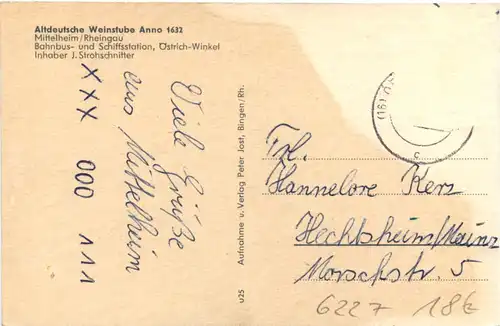 Altdeutsche Weinstube Anno 1632
Mittelheim/Rheingau
Bahnbus- und Schiffsstation, Östrich-Winkel
Inhaber J. Strohschnitter
Viele Grüße
aus Mittelheim
XXX 000 111
u25 Aufnahme u. Verlag Peter Jost, Bingen/Rh.
(16)
c
Frl.
Hannelore Kerz
Hechtsheim/Mainz
Morschstr. 5
6227 18€